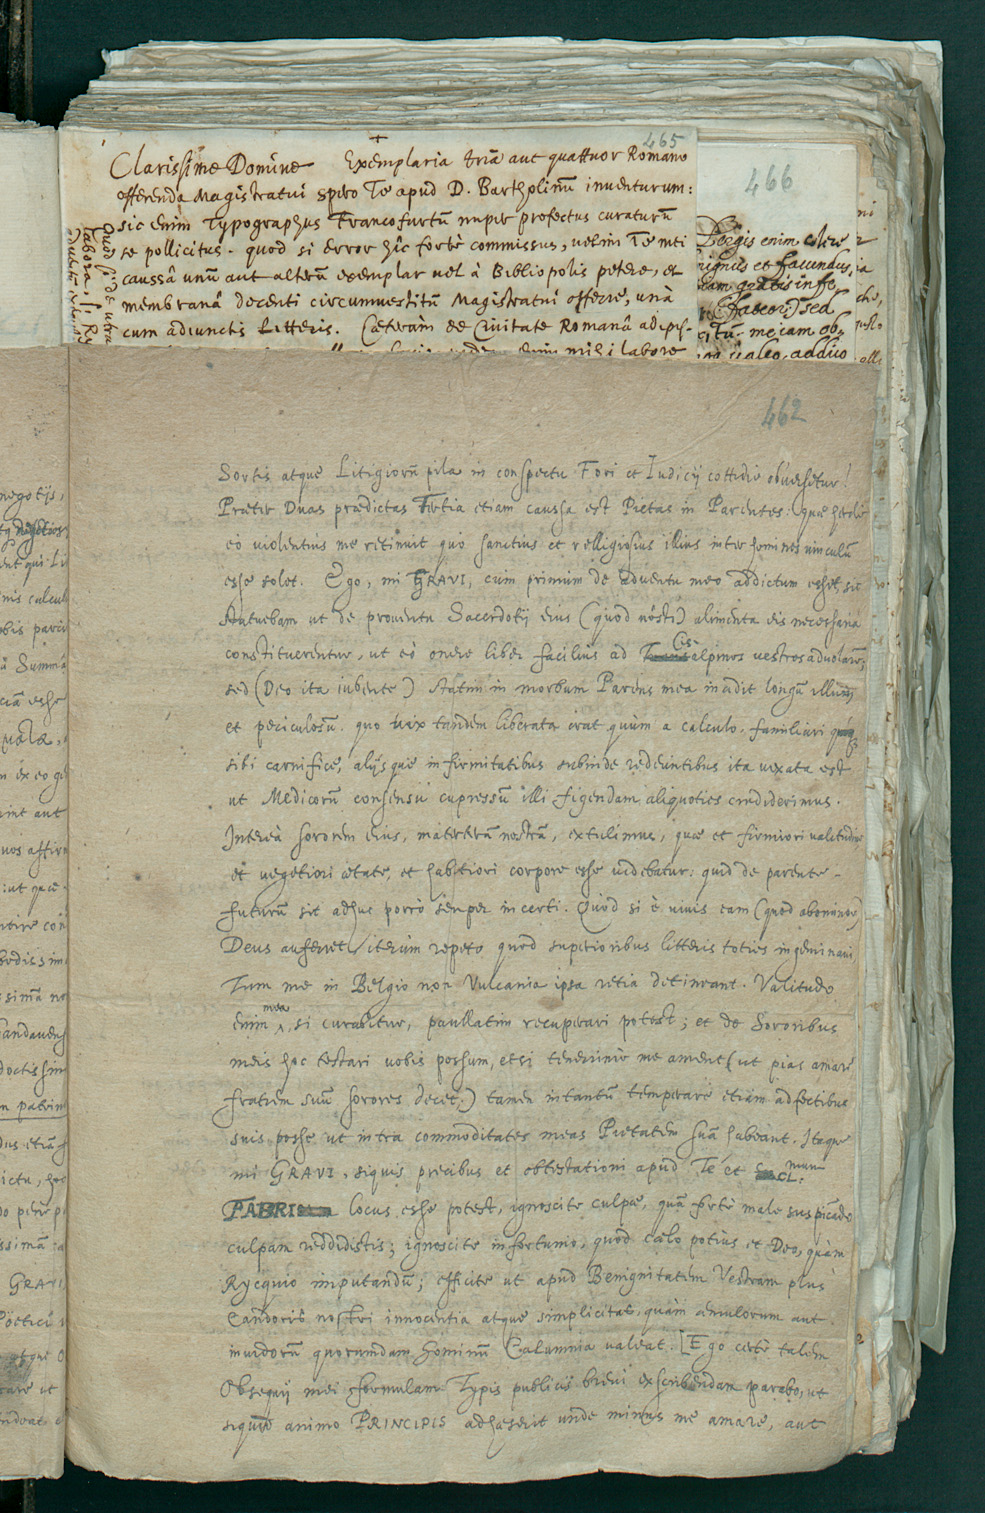 465
Clarissime Domine Exemplaria tria aut quattuor Romano
offerenda Magistratui spero Te apud D. Bartholinũ inventurum:
sic enim Typographus Francofurtũ nuper profectus curaturũ
se pollicitus. quod si error hîc fortè commissus, velim Te mei
caussâ unũ aut alterũ exemplar vel à Bibliopolis petere, et
membranâ decenti circumvestitũ Magistratui offerre, unà
cum adiunctis Litteris. Cæterùm de Civitate Romanâ adipis-
enim mihi labore
466
Belgis enim
et facundus,
gratis
(Fateor) sed
mecum ob-
adduo
462
Sortis atque Litigiorũ pila in conspectu Fori et Iudicij cottidie obversetur!
Præter Duas prædictas Tertia etiam caussa est Pietas in Parentes: quæ herclè
eò violentius me retinuit quò sanctius et relligiosius illius inter homines vinculũ
esse solet. Ego, mi GRAVI, cùm primùm de adventu meo addictum esset, sic
statuebam ut de proventu Sacerdotij eius (quod nôsti) alimenta eis necessaria
constituerentur, ut eò onere liber faciliùs ad Cisalpinos vestros advolarẽ;
sed (Deo ita iubente) statim in morbum Parens mea incidit longũ illum
et periculosũ. quo vix tandem liberata erat quùm a calculo, familiari
sibi carnifice, alijsque infirmitatibus subinde redeuntibus ita vexata est
ut Medicorũ consensu cupressũ illi figendam aliquoties crediderimus.
Intereà sororem eius, materterã nostrã, extulimus, quæ et firmiori valetudine,
et vegetiori ætate, et habitiori corpore esse videbatur: quid de parente
futurũ sit adhuc porrò semper incerti. Quòd si è vivis eam (quod abominor)
Deus auferret, iterùm repeto quod superioribus litteris toties ingeminavi,
Tum me in Belgio non Vulcania ipsa retia detineant. Valitudo
enim mea, si curabitur, paullatim recuperari potest; et de Sororibus
meis hoc testari vobis possum, etsi tenerrimè me ament (ut pias amare
fratrem suũ sorores decet;) tamen in tantũ temperare etiam adfectibus
suis posse ut intra commoditates meas Pietatem suã habeant. Itaque
mi GRAVI, siquis precibus et obtestationi apud Te et CL.mum
FABRI locus esse potest, ignoscite culpæ, quã fortè male suspicãdo
culpam reddidistis; ignoscite infortunio, quod cælo potius et Deo, quàm
Rycquio imputandũ; efficite ut apud Benignitatem Vestram plus
Candoris nostri innocentia atque simplicitas, quàm æmulorum aut
invidorũ quorumdam hominũ Calumnia valeat. [Ego certè talem
Obsequij mei formulam Typis publicis brevi exscribendam parabo, ut
siquid animo PRINCIPIS adhæserit unde minus me amare, aut